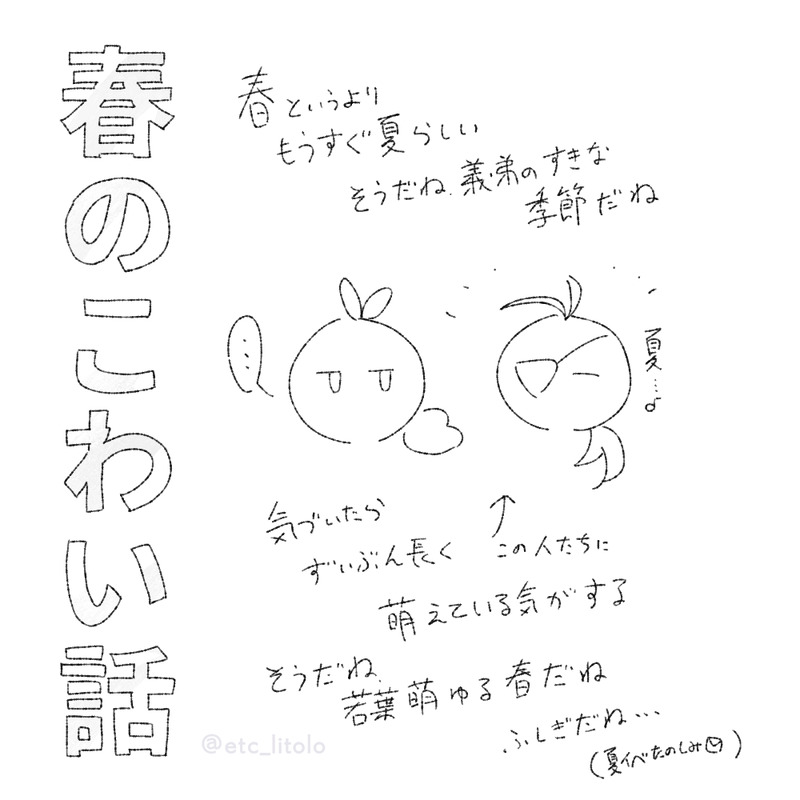 春のこわい話
春というより
もうすぐ夏らしい
そうだね、義弟のすきな
季節だね
...
夏…♪
気づいたら
ずいぶん長く
↑
この人たちに
萌えている気がする
そうだね、
若葉萌ゆる春だね
ふしぎだね…
(夏イベたのしみ)
@etc_litolo